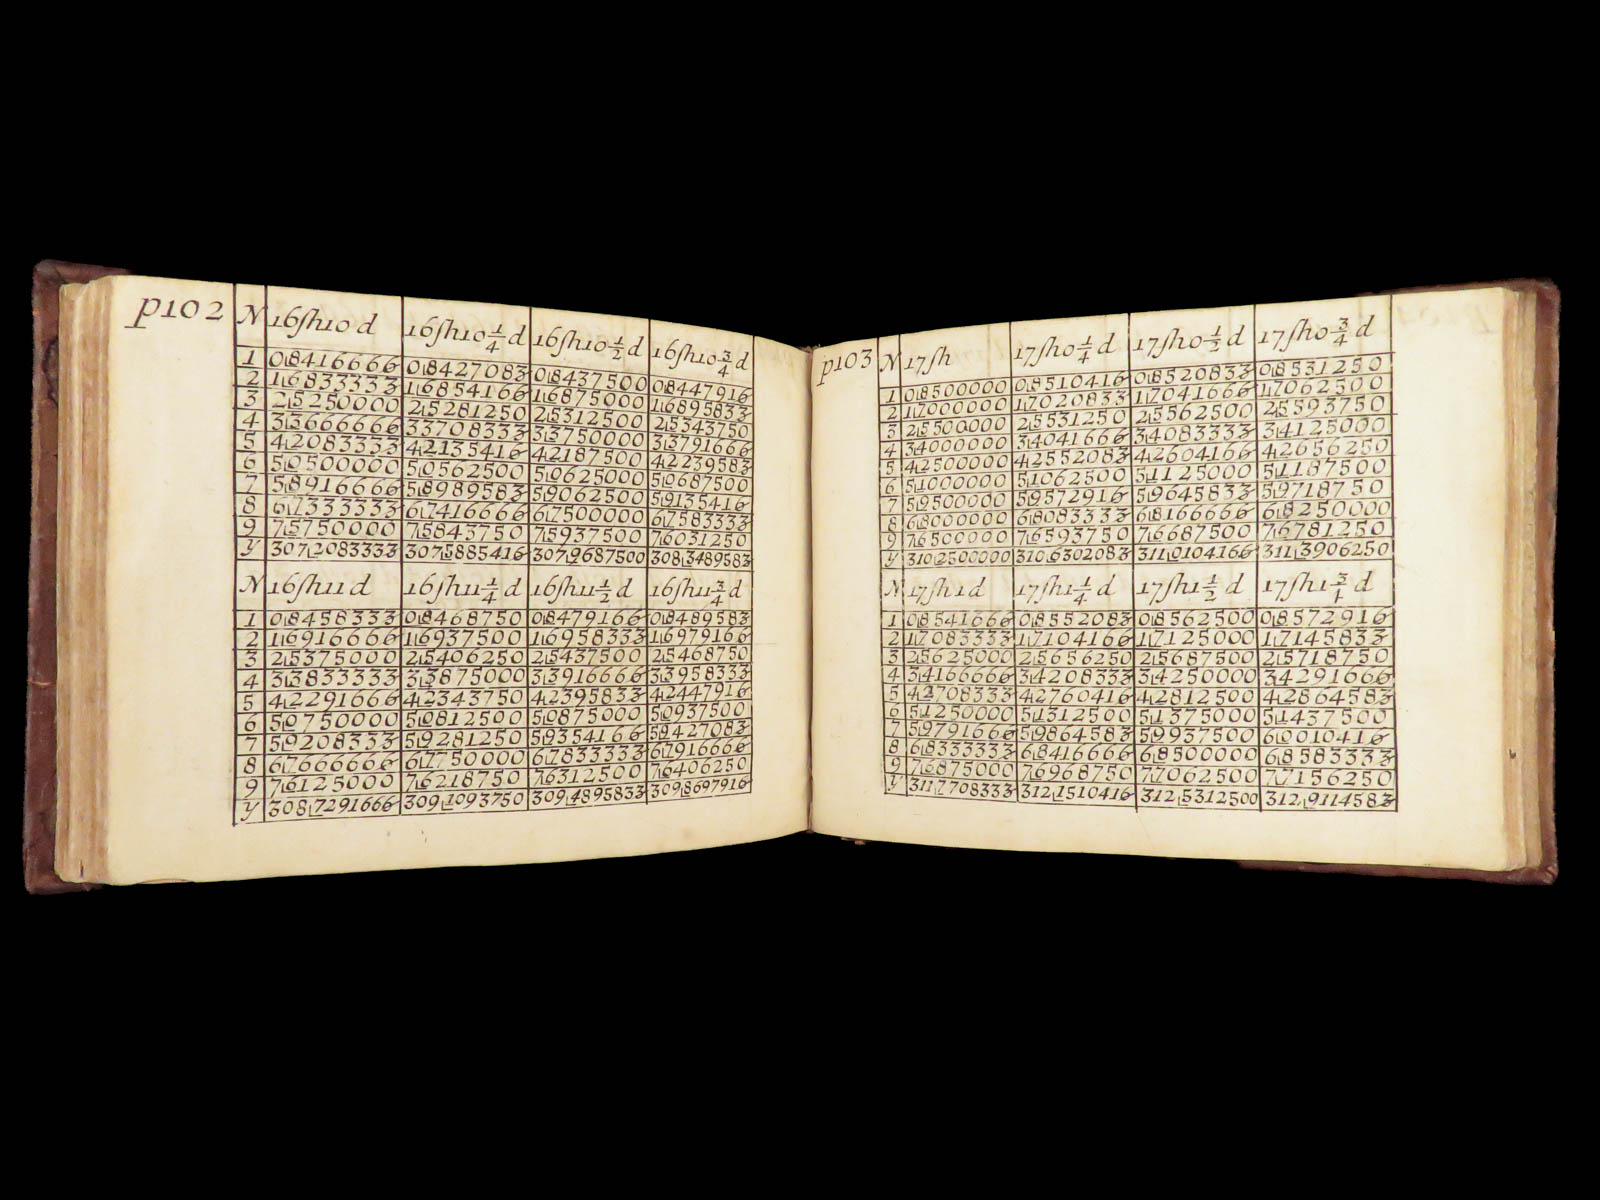 p102 N 16sh10 d 16sh10 1/4 d 16sh10 1/2 d 16sh10 3/4 d
1 0|8416666 0|8427083 0|8437500 0|8447916
2 1|6833333 1|6854166 1|6875000 1|6895833
3 2|5250000 2|5281250 2|5312500 2|5343750
4 3|3666666 33708333 3|3750000 3|3791666
5 4|2083333 4|2135416 4|2187500 4|2239583
6 5|0500000 5|0562500 5|0625000 5|0687500
7 5|8916666 5|8989583 5|9062500 5|9135416
8 6|7333333 6|7416666 6|7500000 6|7583333
9 7|5750000 7|5843750 7|5937500 7|6031250
y 307|2083333 307|5885416 307|9687500 308|3489583
N 16sh11 d 16sh11 1/4 d 16sh11 1/2 d 16sh11 3/4 d
1 0|8458333 0|8468750 0|8479166 0|8489583
2 1|6916666 1|6937500 1|6958333 1|6979166
3 2|5375000 2|5406250 2|5437500 2|5468750
4 3|3833333 3|3875000 3|3916666 3|3958333
5 4|2291666 4|2343750 4|2395833 4|2447916
6 5|0750000 5|0812500 5|0875000 5|0937500
7 5|9208333 5|9281250 5|9354166 5|9427083
8 6|7666666 6|7750000 6|7833333 6|7916666
9 7|6125000 7|6218750 7|6312500 7|6406250
y 308|7291666 309|1093750 309|4895833 309|8697916
p103 N 17sh 17sh0 1/4 d 17sh0 1/2 d 17sh0 3/4 d
1 0|8500000 0|8510416 0|8520833 0|8531250
2 1|7000000 1|7020833 1|7041666 1|7062500
3 2|5500000 2|5531250 2|5562500 2|5593750
4 3|4000000 3|4041666 3|4083333 3|4125000
5 4|2500000 4|2552083 4|2604166 4|2656250
6 5|1000000 5|1062500 5|1125000 5|1187500
7 5|9500000 5|9572916 5|9645833 5|9718750
8 6|8000000 6|8083333 6|8166666 6|8250000
9 7|6500000 7|6593750 7|6687500 7|6781250
y 310|2500000 310|6302083 311|0104166 311|3906250
N 17sh1 d 17sh1 1/4 d 17sh1 1/2 d 17sh1 3/4 d
1 0|8541666 0|8552083 0|8562500 0|8572916
2 1|7083333 1|7104166 1|7125000 1|7145833
3 2|5625000 2|5656250 2|5687500 2|5718750
4 3|4166666 3|4208333 3|4250000 3|4291666
5 4|2708333 4|2760416 4|2812500 4|2864583
6 5|1250000 5|1312500 5|1375000 5|1437500
7 5|9791666 5|9864583 5|9937500 6|0010416
8 6|8333333 6|8416666 6|8500000 6|8583333
9 7|6875000 7|6968750 7|7062500 7|7156250
y 311|7708333 312|1510416 312|5312500 312|9114583